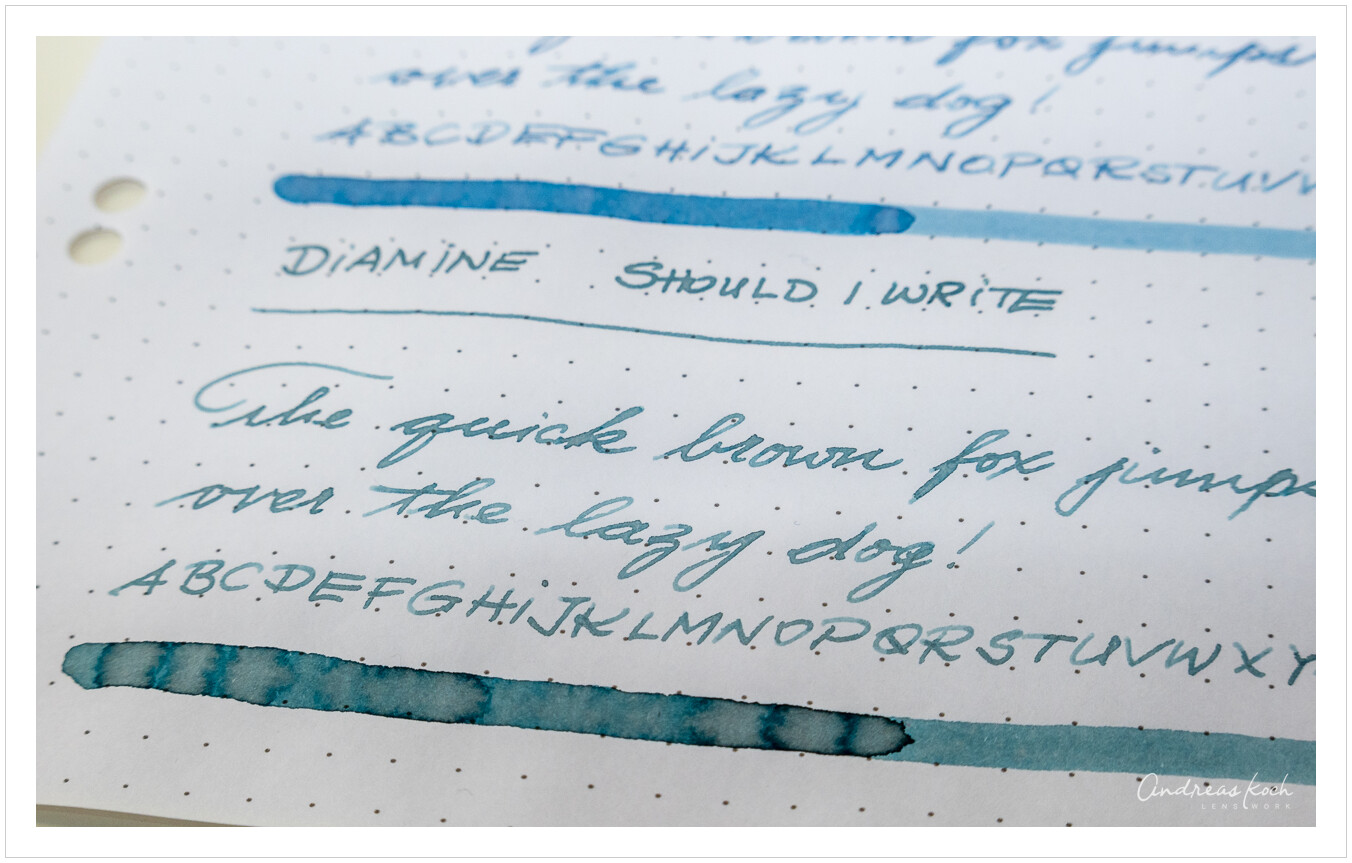 brown fox jumps
over the lazy dog!
ABCDEFGHiJKLMNOPQRSTUVW
DiAMiNE SHOULD I WRiTE
The quick brown fox jumps
over the lazy dog!
ABCDEFGHiJKLMNOPQRSTUVWXY
Andreas Koch
LENSWORK